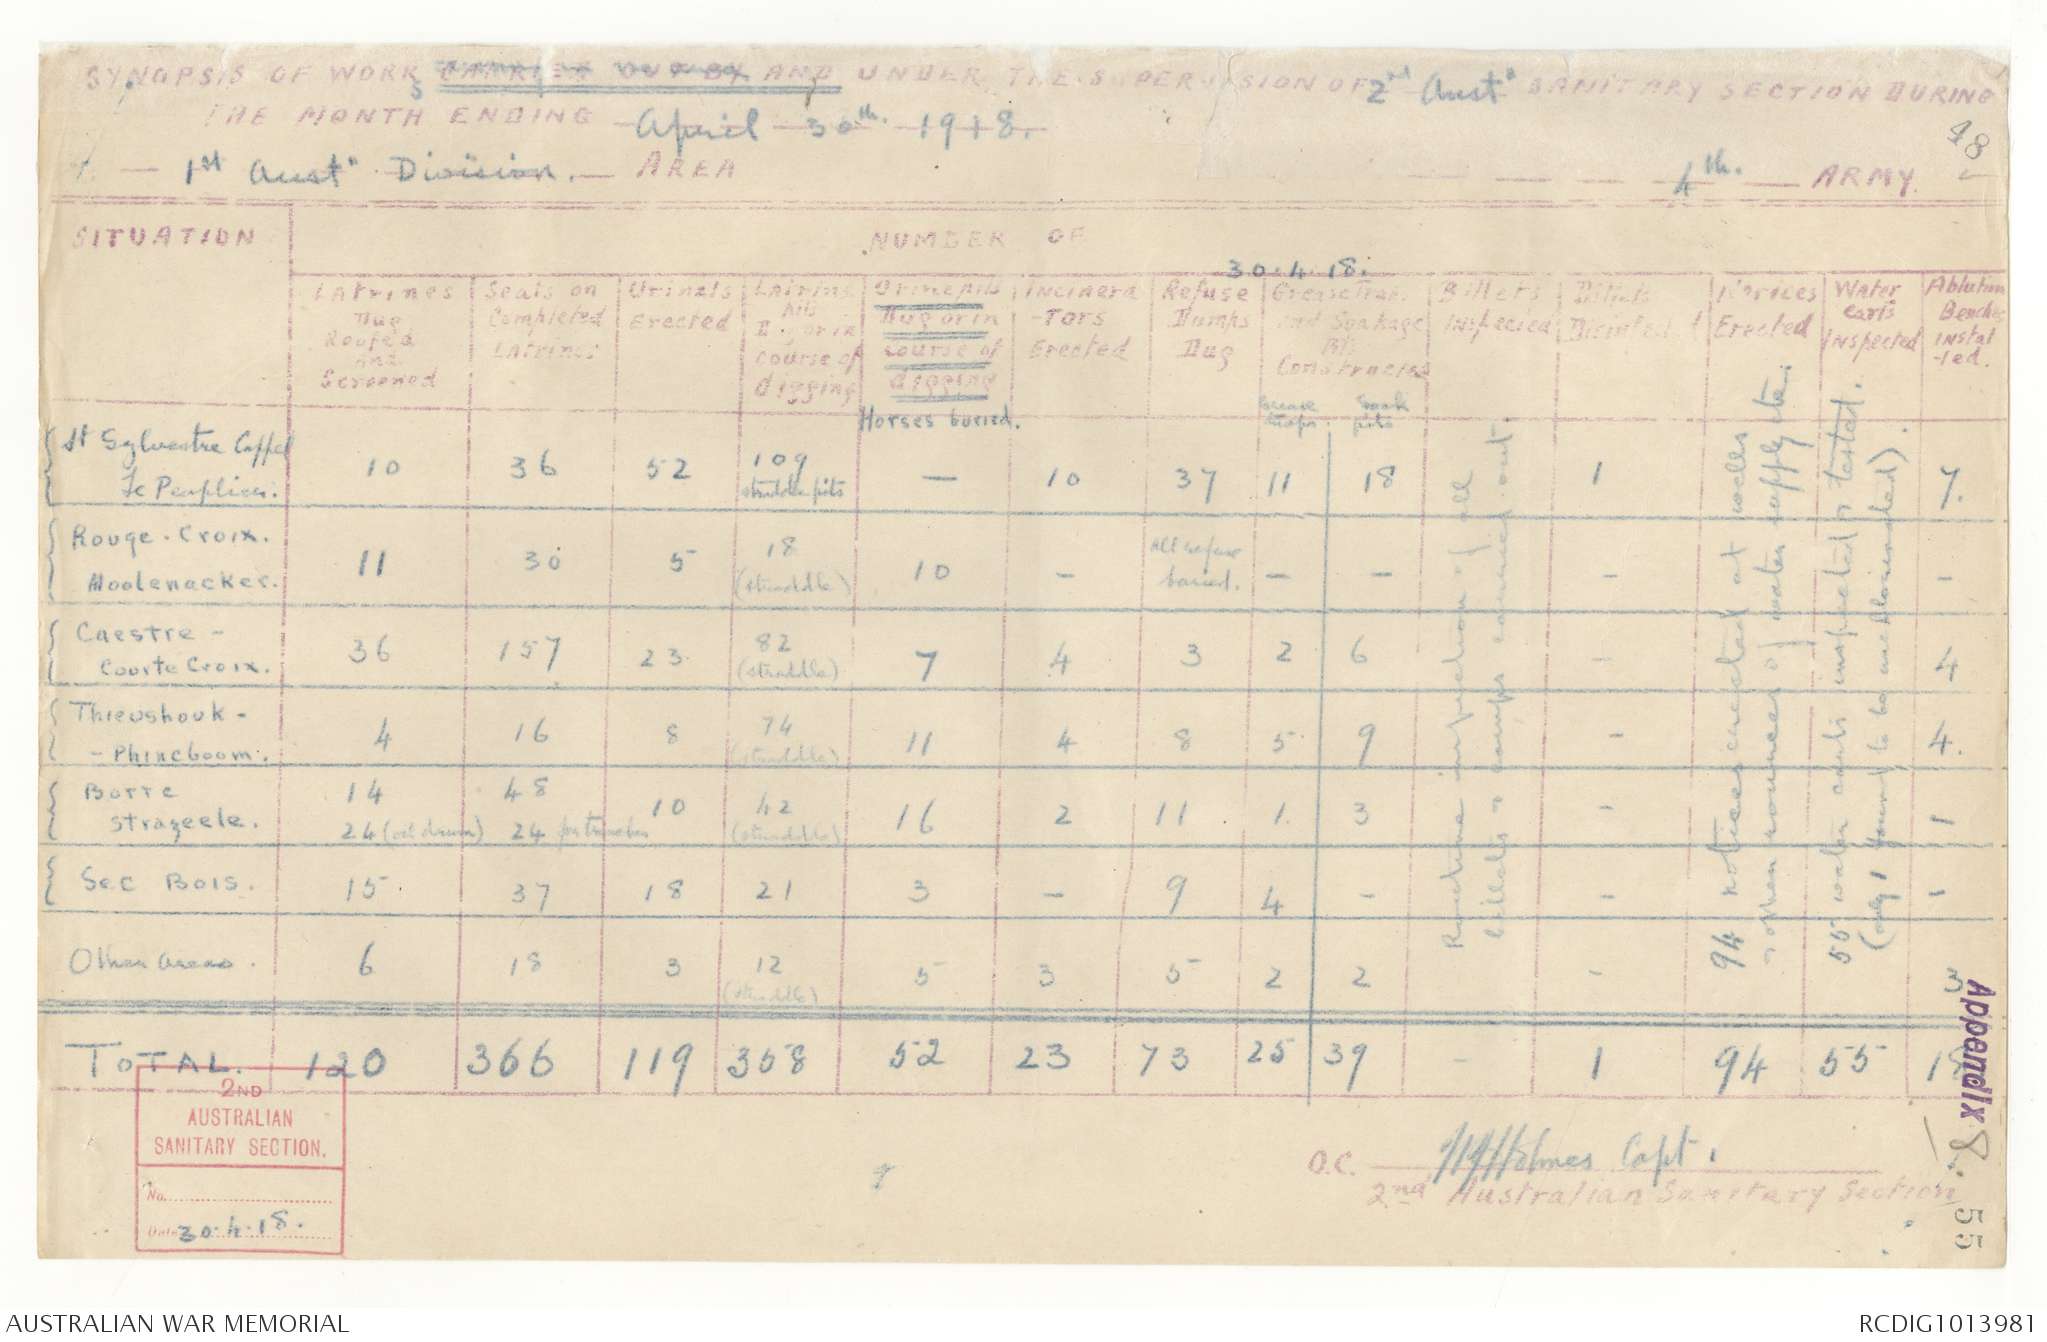 SYNOPSIS OF WORKS CARRIED OUT BY AND UNDER THE SUPERVISION OF 2nd Aust<sup>n</sup> SANITARY SECTION DURING
THE MONTH ENDING April 30th. 1918.
48
1st Aust<sup>n</sup> Division. AREA 4th. ARMY.
SITUATION NUMBER OF
30.4.18.
LATRINES Dug Roofed and Screened
Seats on Completed LATRINES
Urinals Erected
Latrine pits Dug or in course of digging
Urinepits Dug or in course of digging
Horses buried.
INCINERA-TORS Erected
Refuse Dumps Dug
Grease Traps and Soakage Pits Constructed
Grease traps. Soak pits
Billets INSPECTED
Billets Disinfected
Notices Erected
Water carts INSPECTED
Ablution Benches instal-led.
St Sylvestre Cappel
Le Peuplier. 10 36 52 109 straddle pits — 10 37 11 18 1 7.
Rouge-Croix.
Moolenacker. 11 30 5 18 (straddle) 10 – All refuse buried. – – – –
Caestre –
Courte Croix. 36 157 23 82 (straddle) 7 4 3 2 6 – 4
Thieushouk –
– Phineboom. 4 16 8 74 (straddle) 11 4 8 5 9 – 4.
Borre 14 48
Strazeele. 24 (oil drum) 24 for trenches 10 42 (straddle) 16 2 11 1. 3 – 1
Sec Bois. 15 37 18 21 3 – 9 4 – – –
Other areas. 6 18 3 12 (straddle) 5 3 5 2 2 – 3
Routine inspection of all
billets & camps carried out.
94 notices erected at wells
& other sources of water supply etc.
55 water carts inspected & tested.
(only 1 found to be unchlorinated).
TOTAL. 120 366 119 358 52 23 73 25 39 – 1 94 55
2ND
AUSTRALIAN
SANITARY SECTION.
No.
Date 30.4.18.
O.C. Holmes Capt.
2nd Australian Sanitary Section
Appendix 8.
55
AUSTRALIAN WAR MEMORIAL
RCDIG1013981